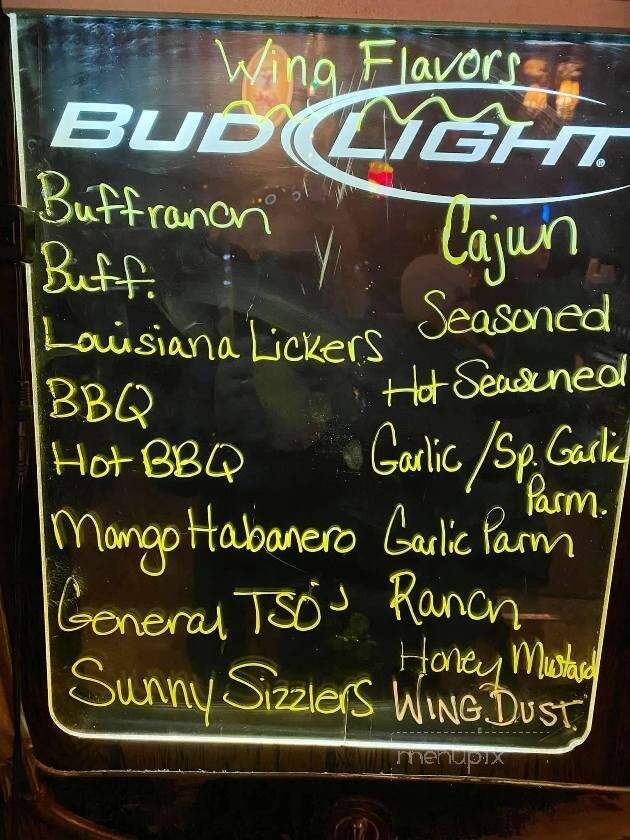 Wing Flavors
BUD LIGHT
Buffranch
Buff.
Louisiana Lickers
BBQ
Hot BBQ
Mango Habanero
General TSO's
Sunny Sizzlers
Cajun
Seasoned
Hot Seasoned
Garlic / Sp. Garlic
Parm.
Garlic Parm
Ranch
Honey Mustard
WING DUST
menupix